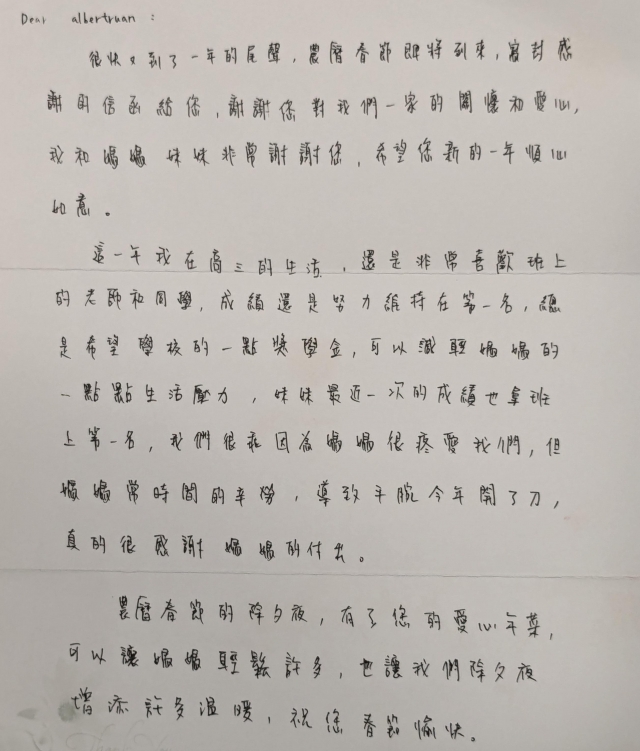 Dear albertruan :
很快又到了一年的尾聲，農曆春節即將到來，寫封感
謝的信函給您，謝謝您對我們一家的關懷和愛心，
我和媽媽 妹妹非常謝謝您，希望您新的一年順心
如意。
這一年我在高三的生活，還是非常喜歡班上
的老師和同學，成績還是努力維持在第一名，總
是希望學校的一點獎學金，可以減輕媽媽的
一點點生活壓力，妹妹最近一次的成績也拿班
上第一名，我們很乖因為媽媽很疼愛我們，但
媽媽常時間的辛勞，導致手腕今年開了刀，
真的很感謝媽媽的付出。
農曆春節的除夕夜，有了您的愛心年菜，
可以讓媽媽輕鬆許多，也讓我們除夕夜
增添許多溫暖，祝您春節愉快。